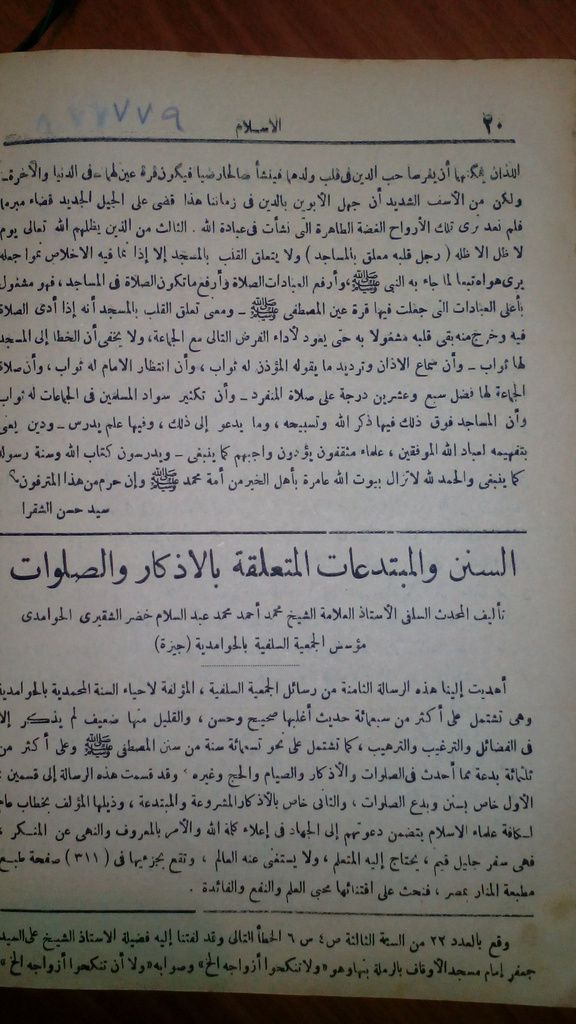 ٧٧٩
٢٠ الاسلام
اللذان يمكنهما أن يغرسا حب الدين فى قلب ولدهما فينشأ صالحا رضيا فيكون قرة عين لهما فى الدنيا والآخرة ـ
ولكن من الأسف الشديد أن جهل الأبوين بالدين فى زماننا هذا قضى على الجيل الجديد قضاء مبرما
فلم نعد نرى تلك الأرواح الغضة الطاهرة التى نشأت فى عبادة الله . الثالث من الذين يظلهم الله تعالى يوم
لا ظل الا ظله ( رجل قلبه معلق بالمساجد ) ولا يتعلق القلب بالمسجد إلا إذا نما فيه الاخلاص نموا جعله
يرى هواه تبعا لما جاء به النبى ﷺ، وأرفع العبادات الصلاة وأرفع ماتكون الصلاة فى المساجد ، فهو مشغول
بأعلى العبادات التى جعلت فيها قرة عين المصطفى ﷺ ـ ومعنى تعلق القلب بالمسجد أنه إذا أدى الصلاة
فيه وخرج منه بقى قلبه مشغولا به حتى يعود لأداء الفرض التالى مع الجماعة، ولا يخفى أن الخطا إلى المسجد
لها ثواب ـ وأن سماع الاذان وترديد ما يقوله المؤذن له ثواب ، وأن انتظار الامام له ثواب ، وأن صلاة
الجماعة لها فضل سبع وعشرين درجة على صلاة المنفرد ـ وأن تكثير سواد المسلمين فى الجماعات له ثواب
وأن المساجد فوق ذلك فيها ذكر الله وتسبيحه ، وما يدعو إلى ذلك ، وفيها علم يدرس ـ ودين يعنى
بتفهيمه لعباد الله الموفقين ، علماء مثقفون يؤدون واجبهم كما ينبغى ـ ويدرسون كتاب الله وسنة رسوله
كما ينبغى والحمد لله لاتزال بيوت الله عامرة بأهل الخير من أمة محمد ﷺ وإن حرم من هذا المترفون ؟
سيد حسن الشقرا
السنن والمبتدعات المتعلقة بالاذكار والصلوات
تأليف المحدث السلفى الأستاذ العلامة الشيخ محمد أحمد محمد عبد السلام خضر الشقيرى الحوامدى
مؤسس الجمعية السلفية بالحوامدية (جيزة)
أهديت إلينا هذه الرسالة الثامنة من رسائل الجمعية السلفية ، المؤلفة لاحياء السنة المحمدية بالحوامدية
وهى تشتمل على أكثر من سبعمائة حديث أغلبها صحيح وحسن ، والقليل منها ضعيف لم يذكر إلا
فى الفضائل والترغيب والترهيب ، كما تشتمل على نحو تسعمائة سنة من سنن المصطفى ﷺ وعلى أكثر من
ثلثمائة بدعة مما أحدث فى الصلوات والأذكار والصيام والحج وغيره ، وقد قسمت هذه الرسالة إلى قسمين :
الأول خاص بسنن وبدع الصلوات ، والثانى خاص بالأذكار المشروعة والمبتدعة ، وذيلها المؤلف بخطاب عام
لكافة علماء الاسلام يتضمن دعوتهم إلى الجهاد فى إعلاء كلمة الله والأمر بالمعروف والنهى عن المنكر ،
فهى سفر جليل قيم ، يحتاج إليه المتعلم ، ولا يستغنى عنه العالم ، وتقع بجزءيها فى ( ٣١١ ) صفحة طبع
مطبعة المنار بمصر ، فنحث على اقتنائها محبى العلم والنفع والفائدة .
وقع بالعدد ٢٢ من السنة الثالثة ص ٤ س ٦ الخطأ التالى وقد لفتنا إليه فضيلة الاستاذ الشيخ على السيد
جعفر إمام مسجد الأوقاف بالرملة بنها وهو «ولا تنكحوا أزواجه الخ» وصوابه «ولا أن تنكحوا أزواجه الخ»